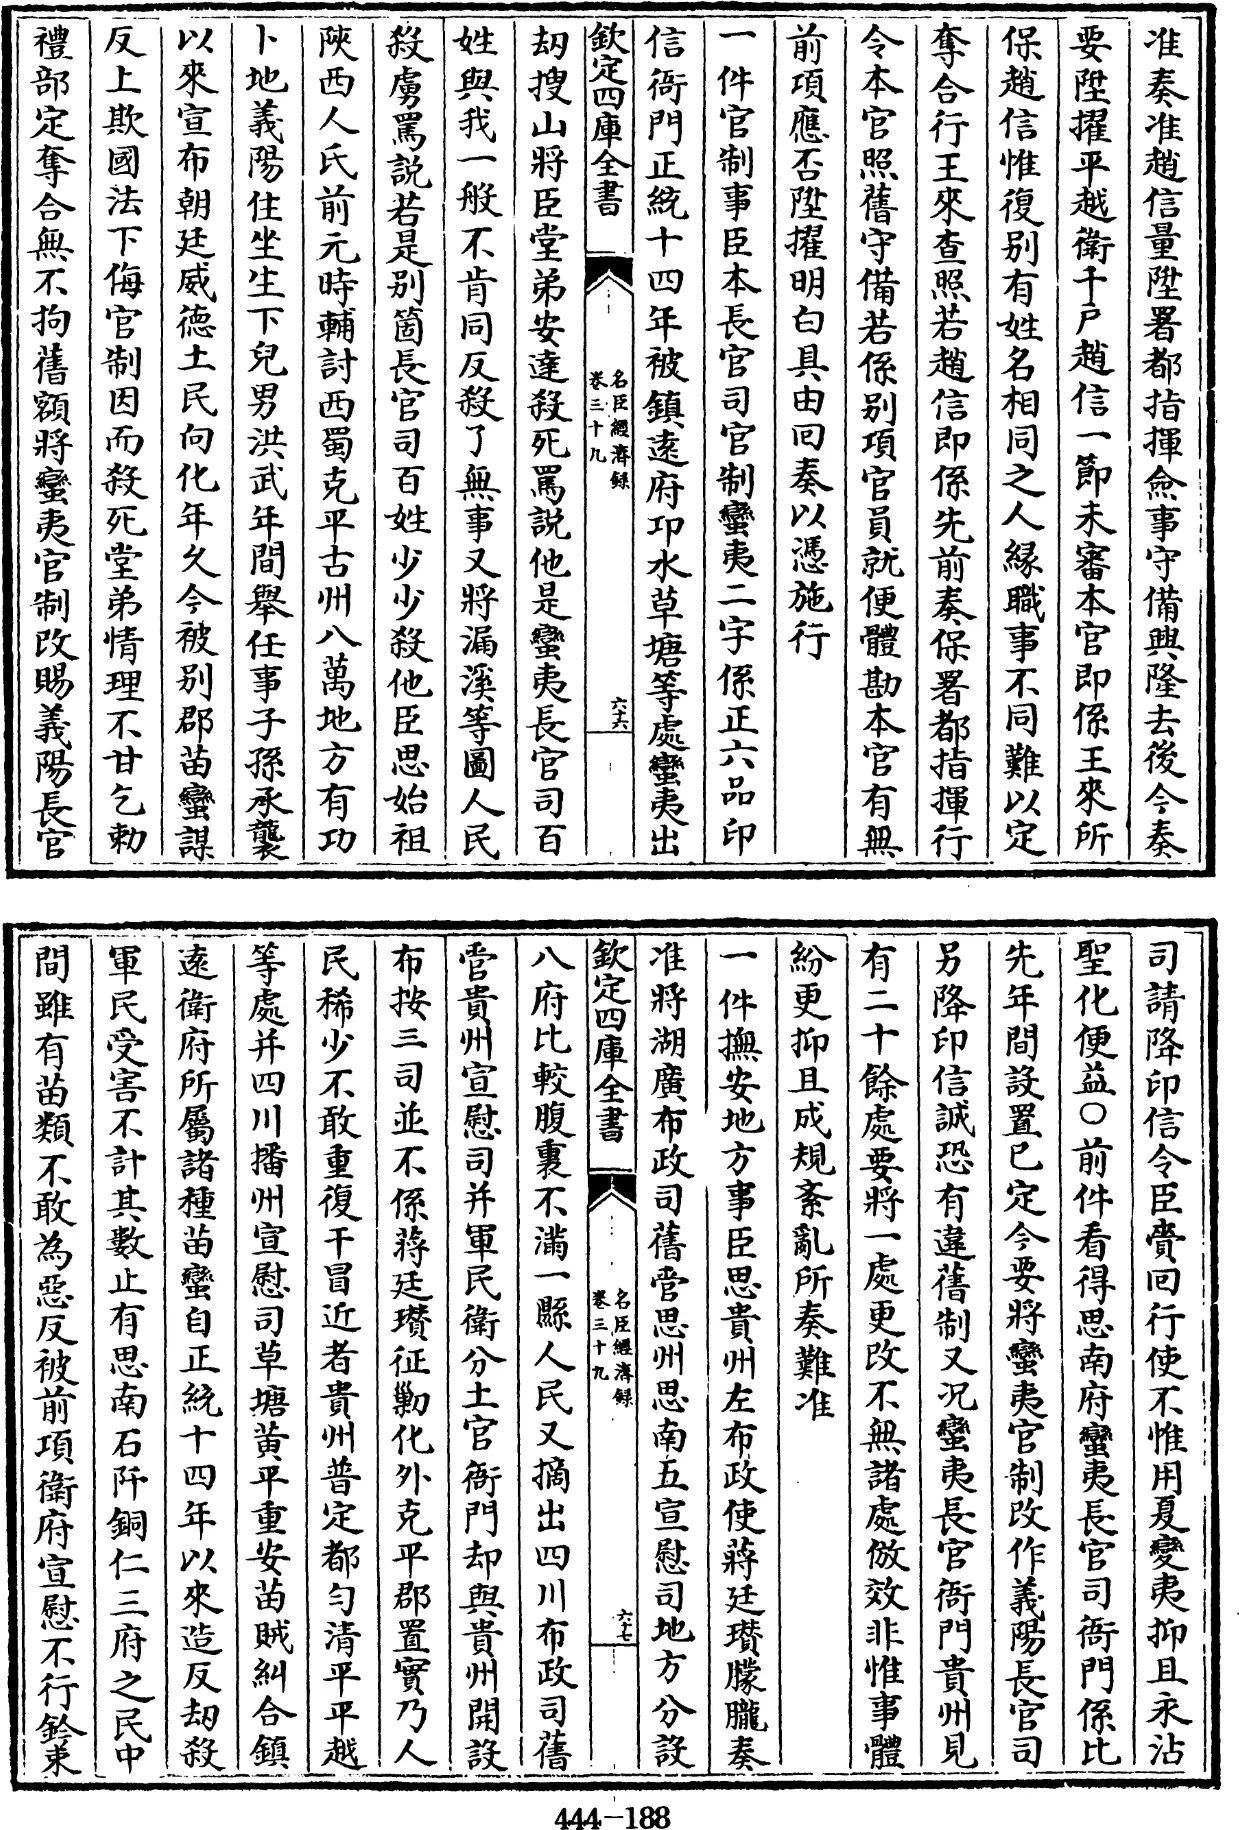 准奏准趙信量陞署都指揮僉事守備興隆去後今奏
要陞擢平越衛千户趙信一節未審本官即係王來所
保趙信惟復别有姓名相同之人緣職事不同難以定
奪合行王來查照若趙信即係先前奏保署都指揮行
令本官照舊守備若係别項官員就便體勘本官有無
前項應否陞擢明白具由回奏以憑施行
一件官制事臣本長官司官制蠻夷二字係正六品印
信衙門正統十四年被鎮遠府邛水草塘等處蠻夷出
欽定四庫全書
名臣經濟録
卷三十九
六十六
刼搜山將臣堂弟安達殺死罵説他是蠻夷長官司百
姓與我一般不肯同反殺了無事又將漏溪等圖人民
殺虜罵説若是别箇長官司百姓少少殺他臣思始祖
陜西人氏前元時輔討西蜀克平古州八萬地方有功
卜地義陽住坐生下兒男洪武年間舉任事子孫承襲
以來宣布朝廷威德土民向化年久今被别郡苗蠻謀
反上欺國法下侮官制因而殺死堂弟情理不甘乞勅
禮部定奪合無不拘舊額將蠻夷官制改賜義陽長官
司請降印信令臣賫回行使不惟用夏變夷抑且永沾
聖化便益○前件看得思南府蠻夷長官司衙門係比
先年間設置已定今要將蠻夷官制改作義陽長官司
另降印信誠恐有違舊制又况蠻夷長官衙門貴州見
有二十餘處要將一處更改不無諸處倣效非惟事體
紛更抑且成規紊亂所奏難准
一件撫安地方事臣思貴州左布政使蔣廷瓚朦朧奏
准將湖廣布政司舊管思州思南五宣慰司地方分設
欽定四庫全書
名臣經濟録
卷三十九
六十七
八府比較腹裏不滿一縣人民又摘出四川布政司舊
管貴州宣慰司并軍民衛分土官衙門却與貴州開設
布按三司並不係蔣廷瓚征勦化外克平郡置實乃人
民稀少不敢重復干冒近者貴州普定都勻清平平越
等處并四川播州宣慰司草塘黄平重安苗賊糾合鎮
遠衛府所屬諸種苗蠻自正統十四年以來造反刼殺
軍民受害不計其數止有思南石阡銅仁三府之民中
間雖有苗類不敢為惡反被前項衛府宣慰不行鈐束
444-188